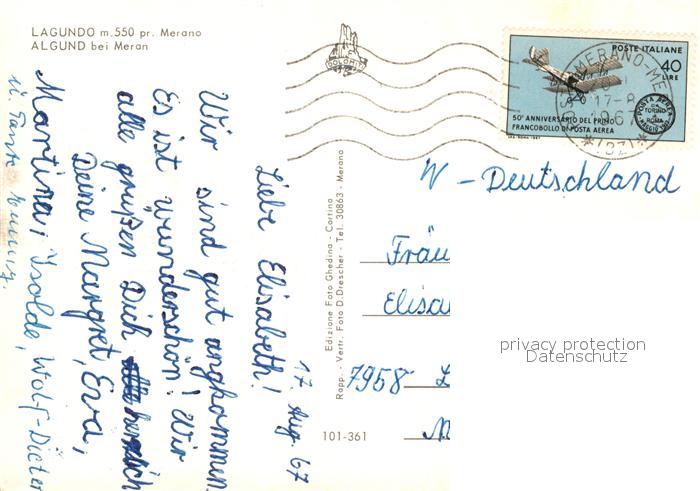 LAGUNDO m.550 pr. Merano
ALGUND bei Meran
17. Aug. 67
Liebe Elisabeth!
Wir sind gut angkommen
Es ist wunderschön! Wir
alle grüßen Dich
Deine Margret, Eva,
Martina, Isolde, Wolf-Dieter
u. Tante
Edizione Foto Ghedina - Cortina
Rapp. - Vertr. Foto D. Drescher - Tel. 30863 - Merano
101-361
DOLOMITI
POSTE ITALIANE
40
LIRE
50° ANNIVERSARIO DEL PRIMO
FRANCOBOLLO DI POSTA AEREA
POSTA AEREA
TORINO
ROMA
MERANO-ME
17-8
1967
W - Deutschland
Fräu
Elisa
7958 L
privacy protection
Datenschutz